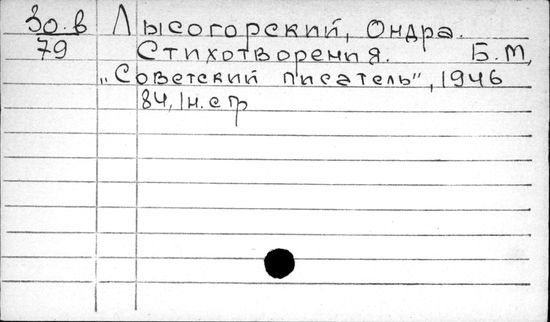 30.в Лысогорский, Ондра.
79 Стихотворения. Б.М,
„Советский писатель", 1946
84, 1н.стр